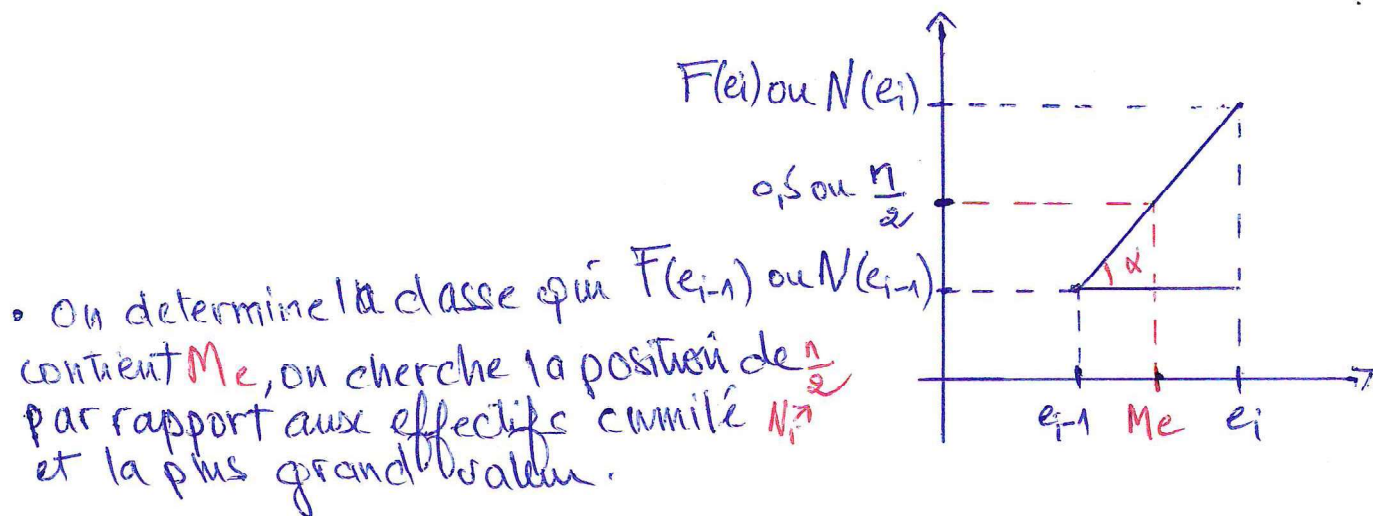 F(ei) ou N(ei)
0,5 ou n/2
F(ei-1) ou N(ei-1)
α
• On determine la classe qui
contient Me, on cherche la position de n/2
par rapport aux effectifs cumilé Ni↗
et la plus grand valeur.
ei-1 Me ei